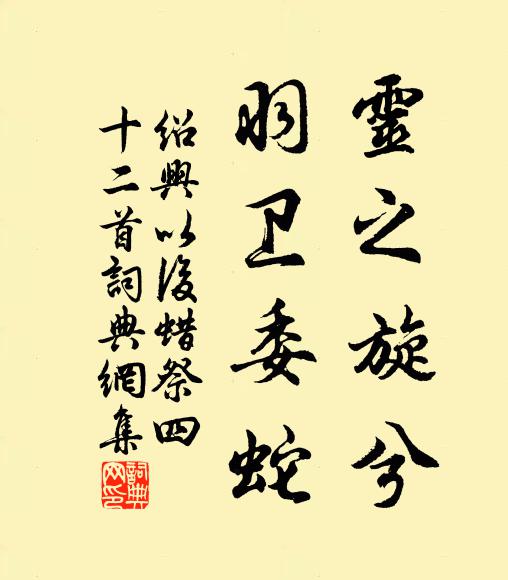 靈之旋兮
羽卫委蛇
绍興以後蜡祭四
十二首詞典網集
詞典网印